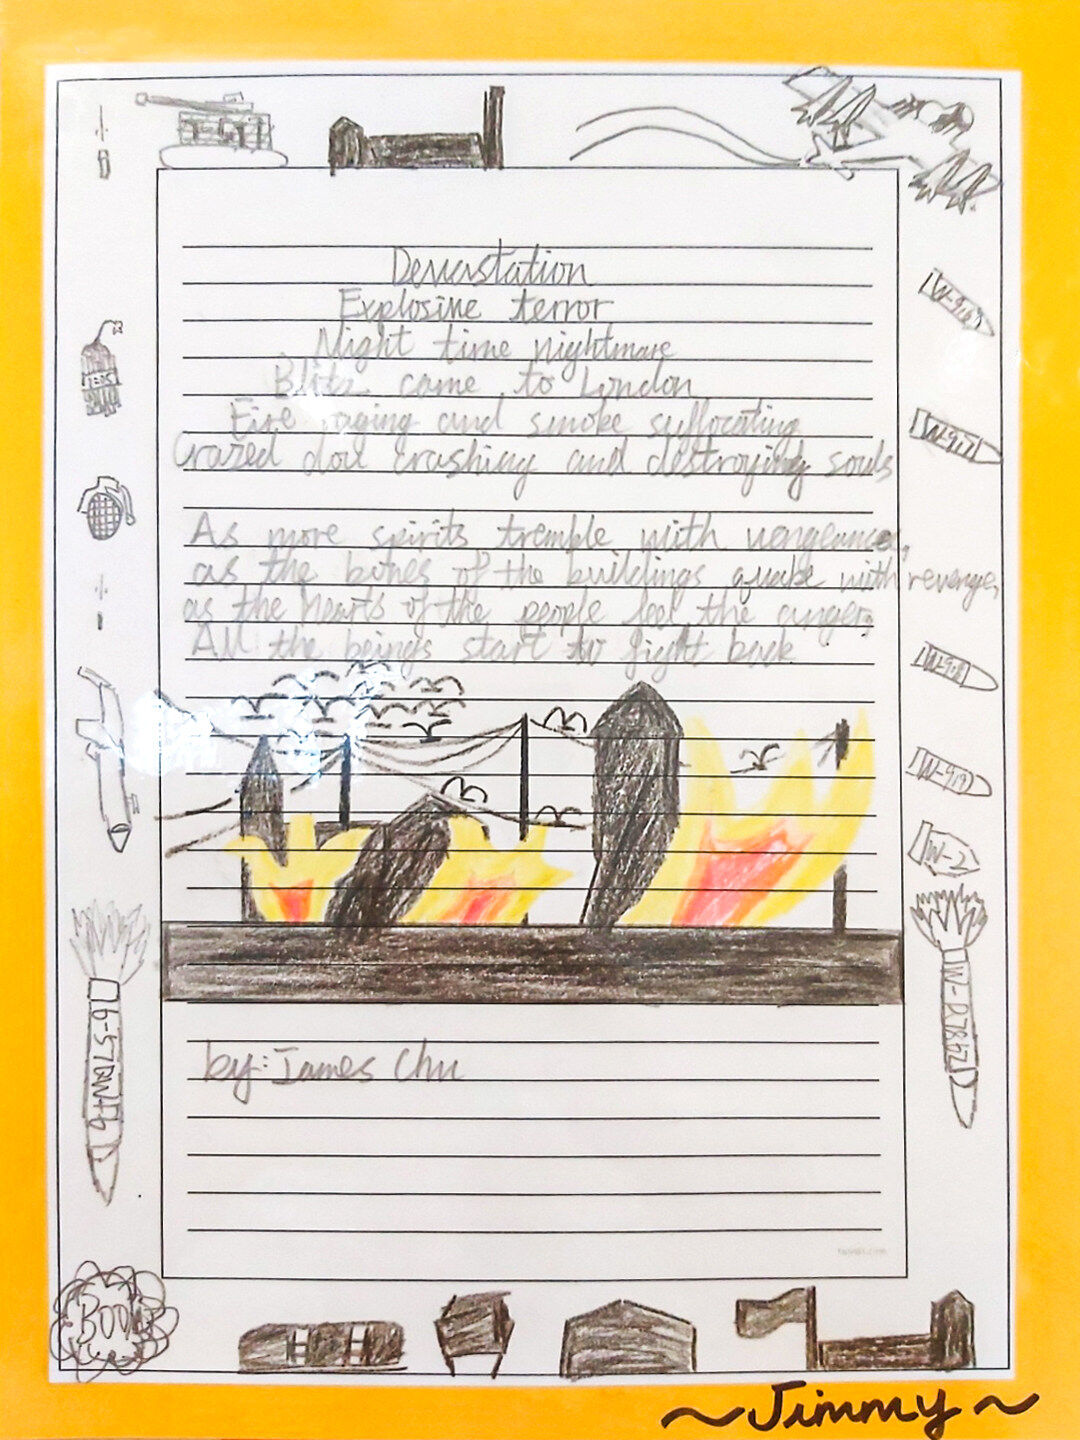 Devastation
Explosive terror
Night time nightmare
Blitz came to London
Fire raging and smoke suffocating
Crazed doll crashing and destroying souls
As more spirits tremble with vengeance,
as the bones of the buildings quake with revenge,
as the hearts of the people feel the anger,
All the beings start to fight back
by: James Chu
W-917
W-919
W-2
BOOM
~Jimmy~